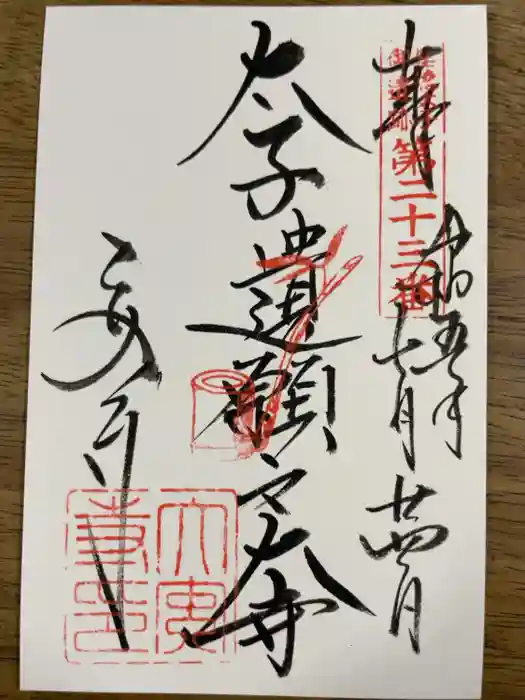 奉拝
第二十三番
令和五年
七月廿四日
太子遺願之大寺
大安寺